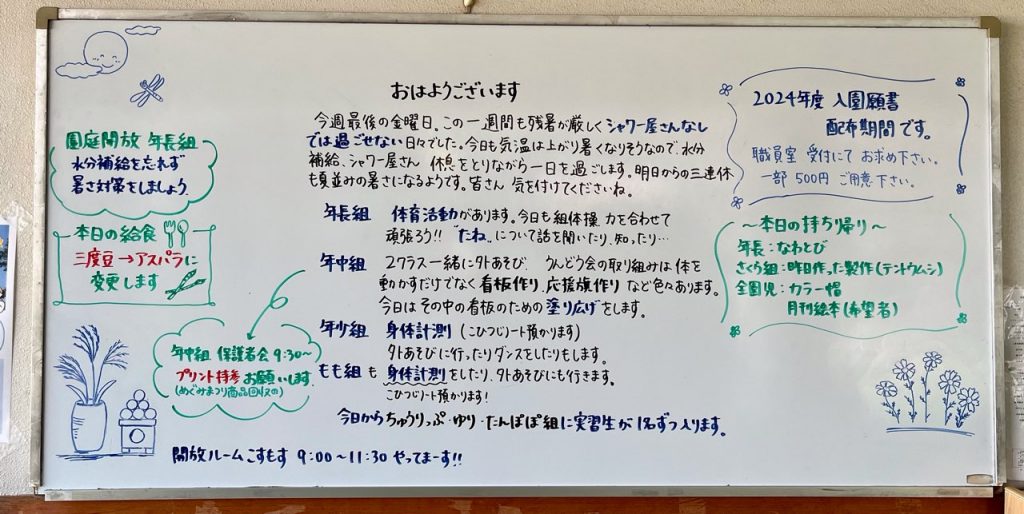 おはようございます
今週最後の金曜日。この一週間も残暑が厳しくシャワー屋さんなし
では過ごせない日々でした。今日も気温は上がり暑くなりそうなので、水分
補給、シャワー屋さん 休息をとりながら一日を過ごします。明日からの三連休
も夏並みの暑さになるようです。皆さん 気を付けてくださいね。
年長組 体育活動があります。今日も組体操 力を合わせて
頑張ろう!! "たね"について話を聞いたり、知ったり…
年中組 2クラス一緒に外あそび. うんどう会の取り組みは体を
動かすだけでなく看板作り、応援旗作り など色々あります。
今日は その中の看板のための塗り広げをします。
年少組 身体計測 (こひつじノート預かります)
外あそびに行ったりダンスをしたりもします。
もも組も 身体計測をしたり、外あそびにも行きます。
こひつじノート預かります!
今日からちゅうりっぷ・ゆり・たんぽぽ組に実習生が1名ずつ入ります。
園庭開放 年長組
水分補給を忘れず
暑さ対策をしましょう
本日の給食
三度豆→アスパラに
変更します
年中組 保護者会 9:30〜
プリント持参お願いします
(めぐみまつり商品回収の)
開放ルームこすもす 9:00〜11:30 やってまーす!!
2024年度 入園願書
配布期間です。
職員室 受付にて お求め下さい。
一部 500円 ご用意下さい。
〜本日の持ち帰り〜
年長:なわとび
さくら組:昨日作った製作(テントウムシ)
全園児:カラー帽
月刊絵本(希望者)